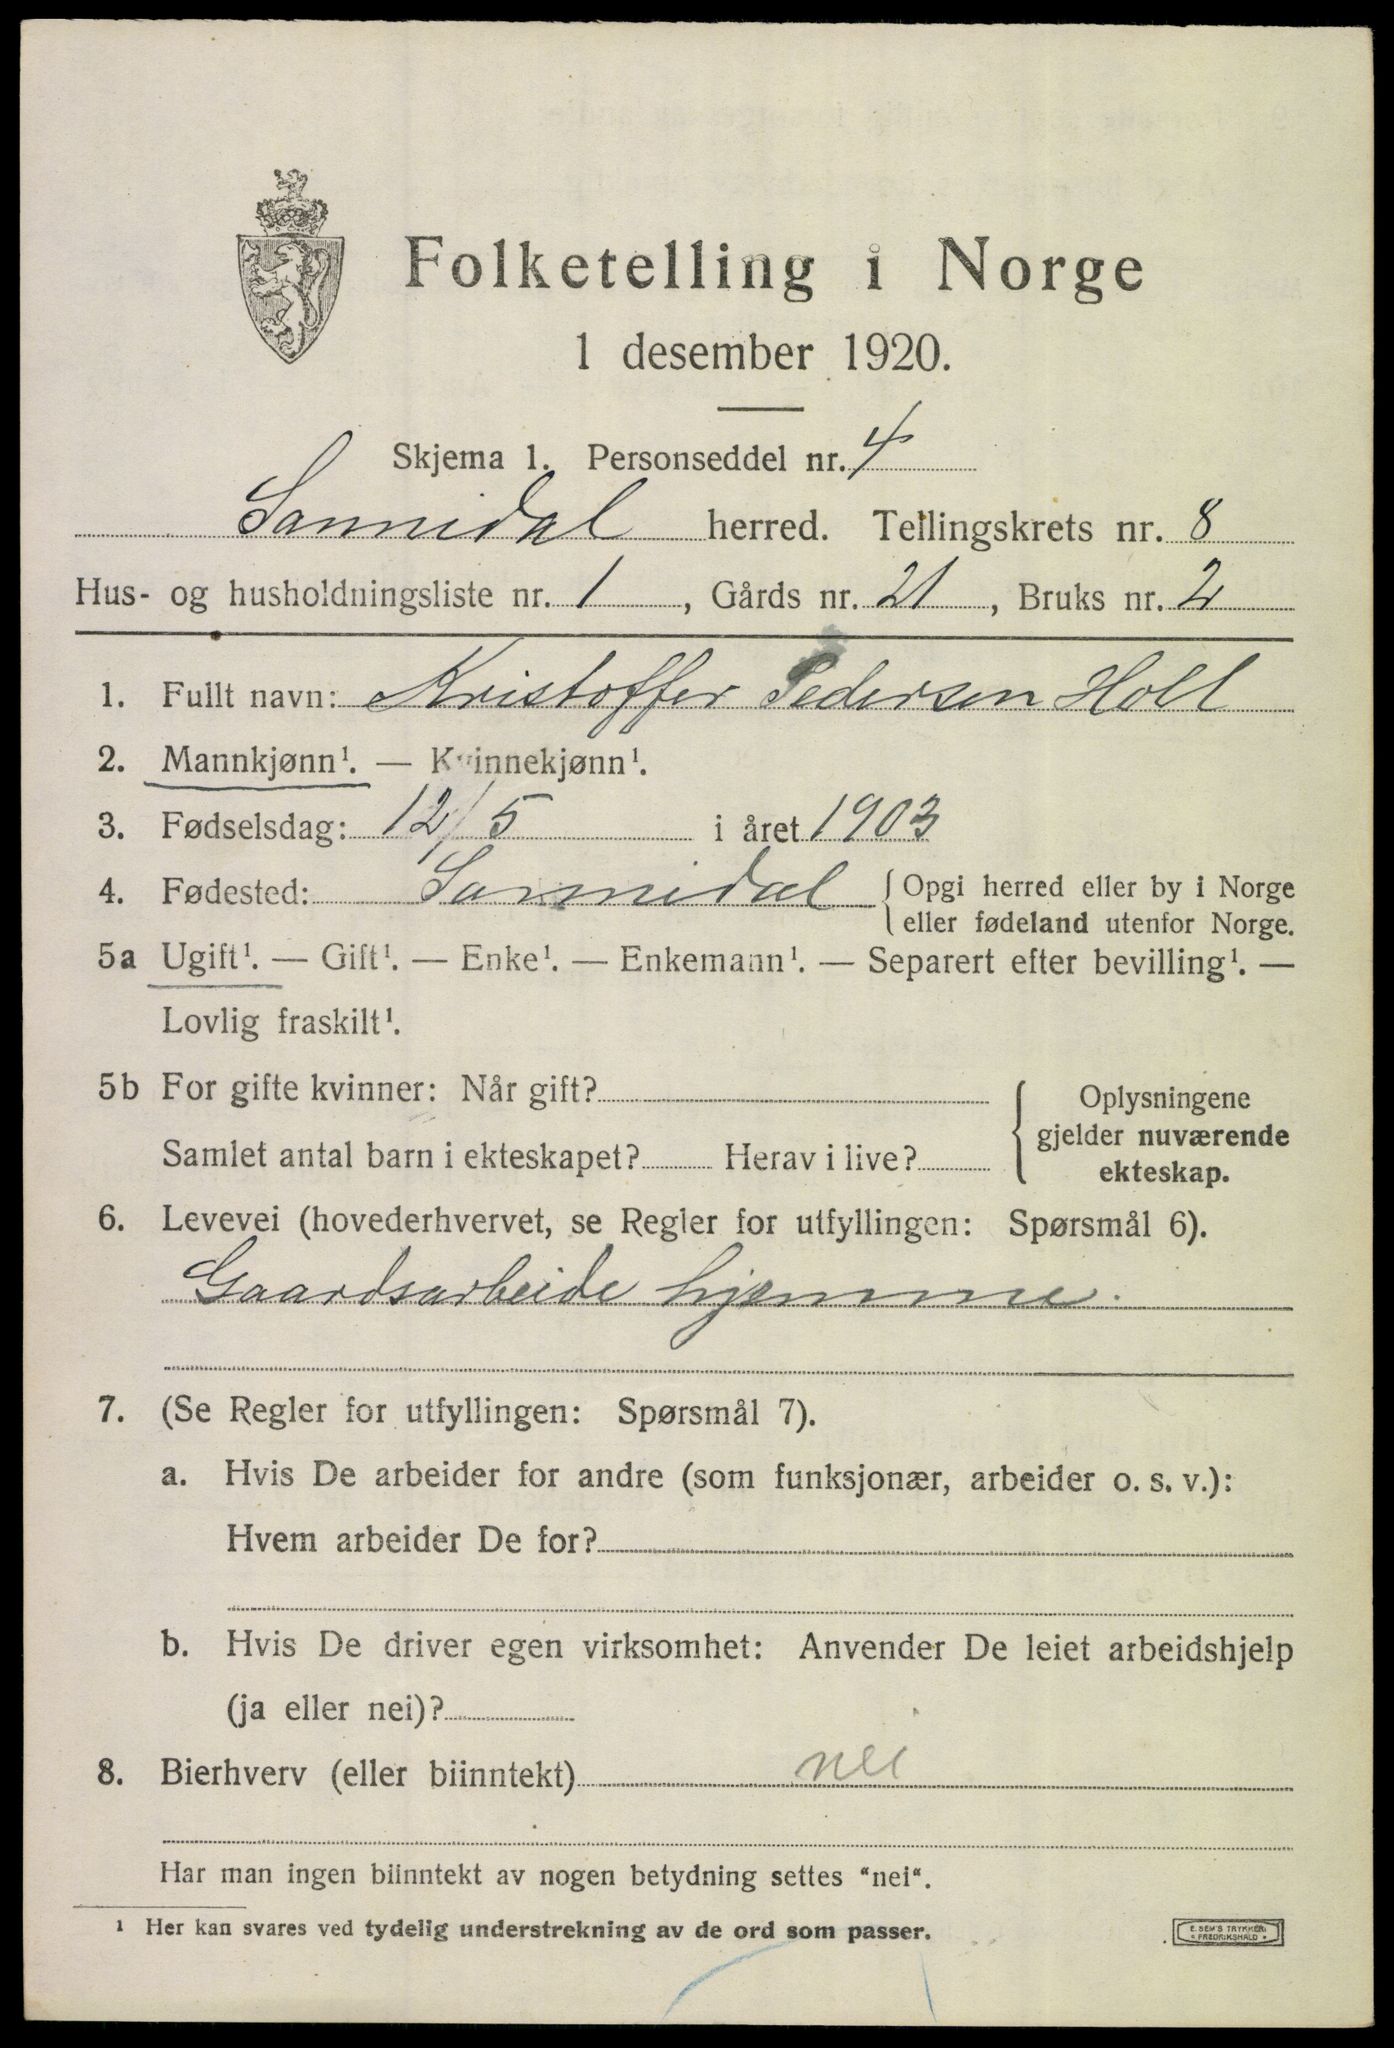 Folketelling i Norge
1 desember 1920.
Skjema 1. Personseddel nr. 4
Sannidal herred. Tellingskrets nr. 8
Hus- og husholdningsliste nr. 1, Gårds nr. 21, Bruks nr. 2
1. Fullt navn: Kristoffer Pedersen Holt
2. Mannkjønn¹. — Kvinnekjønn¹.
3. Fødselsdag: 12/5 i året 1903
4. Fødested: Sannidal { Opgi herred eller by i Norge
eller fødeland utenfor Norge.
5a Ugift¹. — Gift¹. — Enke¹. — Enkemann¹. — Separert efter bevilling¹. —
Lovlig fraskilt¹.
5b For gifte kvinner: Når gift?
Samlet antal barn i ekteskapet? Herav i live?
Oplysningene
gjelder nuværende
ekteskap.
6. Levevei (hovederhvervet, se Regler for utfyllingen: Spørsmål 6).
Gaardsarbeide hjemme.
7. (Se Regler for utfyllingen: Spørsmål 7).
a. Hvis De arbeider for andre (som funksjonær, arbeider o. s. v.):
Hvem arbeider De for?
b. Hvis De driver egen virksomhet: Anvender De leiet arbeidshjelp
(ja eller nei)?
8. Bierhverv (eller biinntekt) nei
Har man ingen biinntekt av nogen betydning settes “nei“.
¹ Her kan svares ved tydelig understrekning av de ord som passer.
E. SEM'S TRYKKERI
* FREDRIKSHALD *